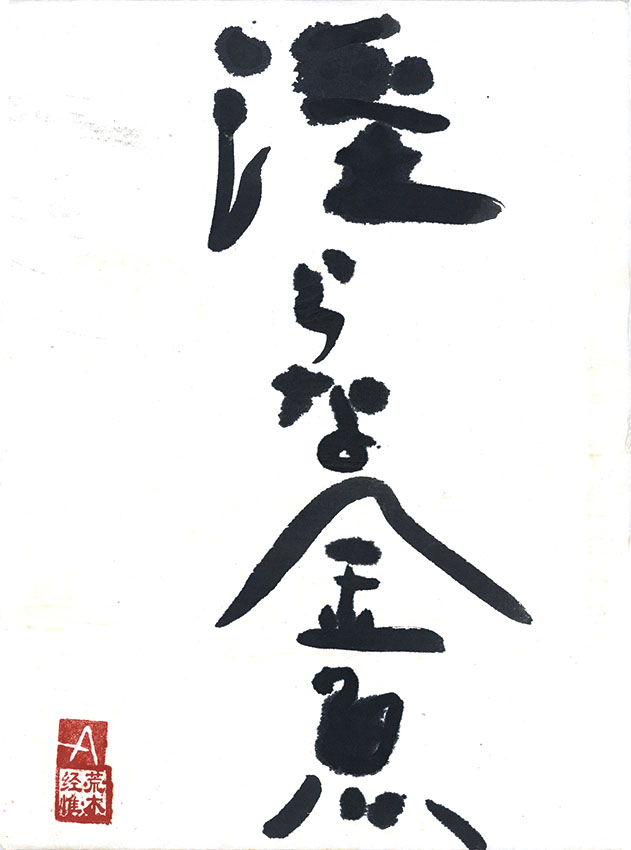 淫らな金魚
A
荒木
经惟